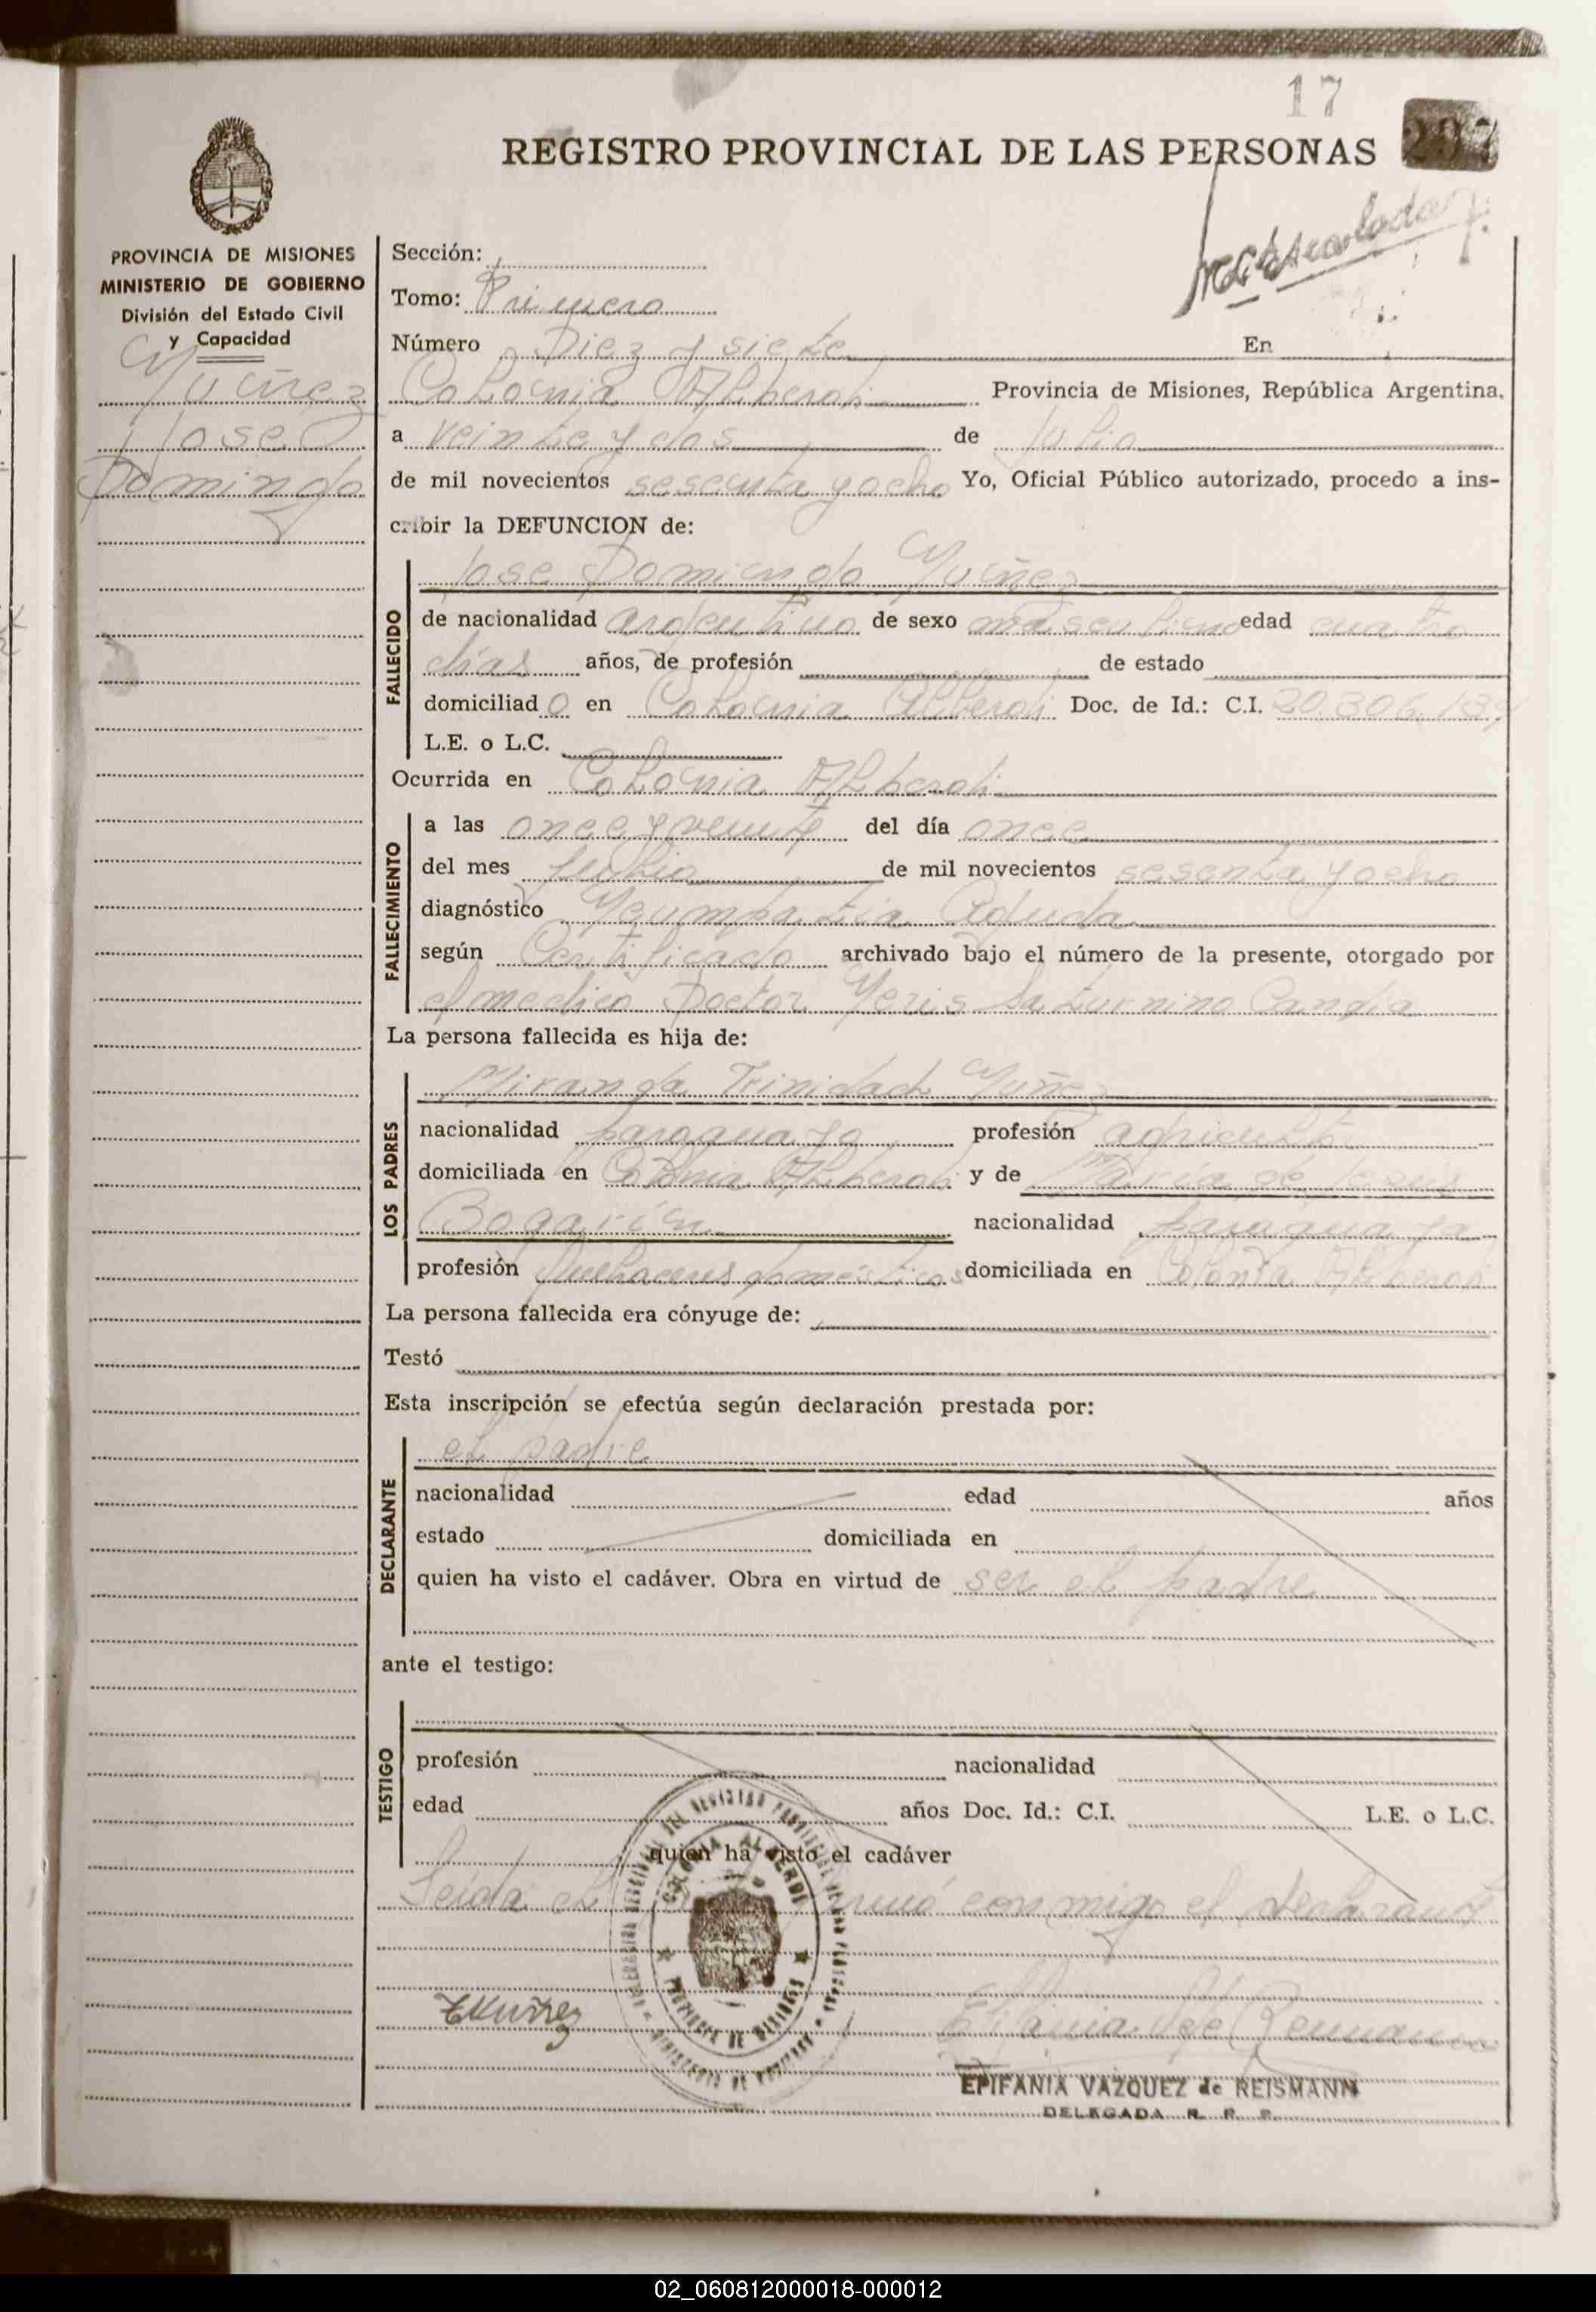 17
REGISTRO PROVINCIAL DE LAS PERSONAS 207
PROVINCIA DE MISIONES
MINISTERIO DE GOBIERNO
División del Estado Civil
y Capacidad
Nuñez
Jose
Domingo
Sección:
Tomo: Primero
Número Diez y siete En
Colonia Alberdi Provincia de Misiones, República Argentina,
a veinte y dos de Julio
de mil novecientos sesenta y ocho Yo, Oficial Público autorizado, procedo a ins-
cribir la DEFUNCION de:
Jose Domingo Nuñez
FALLECIDO
de nacionalidad argentino de sexo masculino edad cuatro
días años, de profesión de estado
domiciliad o en Colonia Alberdi Doc. de Id.: C.I. 20.306.139
L.E. o L.C.
Ocurrida en Colonia Alberdi
FALLECIMIENTO
a las once y veinte del día once
del mes Julio de mil novecientos sesenta y ocho
diagnóstico Aguda
según Certificado archivado bajo el número de la presente, otorgado por
el medico Doctor Saturnino Candia
La persona fallecida es hija de:
LOS PADRES
Miranda Trinidad Nuñez
nacionalidad paraguaya profesión agricultor
domiciliada en Colonia Alberdi y de Maria de Jesus
Bogarín nacionalidad paraguaya
profesión Quehaceres domésticos domiciliada en Colonia Alberdi
La persona fallecida era cónyuge de:
Testó
Esta inscripción se efectúa según declaración prestada por:
DECLARANTE
el padre
nacionalidad edad años
estado domiciliada en
quien ha visto el cadáver. Obra en virtud de ser el padre
ante el testigo:
TESTIGO
profesión nacionalidad
edad años Doc. Id.: C.I. L.E. o L.C.
quien ha visto el cadáver
Leida el conmigo el declarante
COLONIA ALBERDI
PROVINCIA DE MISIONES
TNuñez
Epifania V. de Reismann
EPIFANIA VAZQUEZ de REISMANN
DELEGADA R. P. P.
02_060812000018-000012